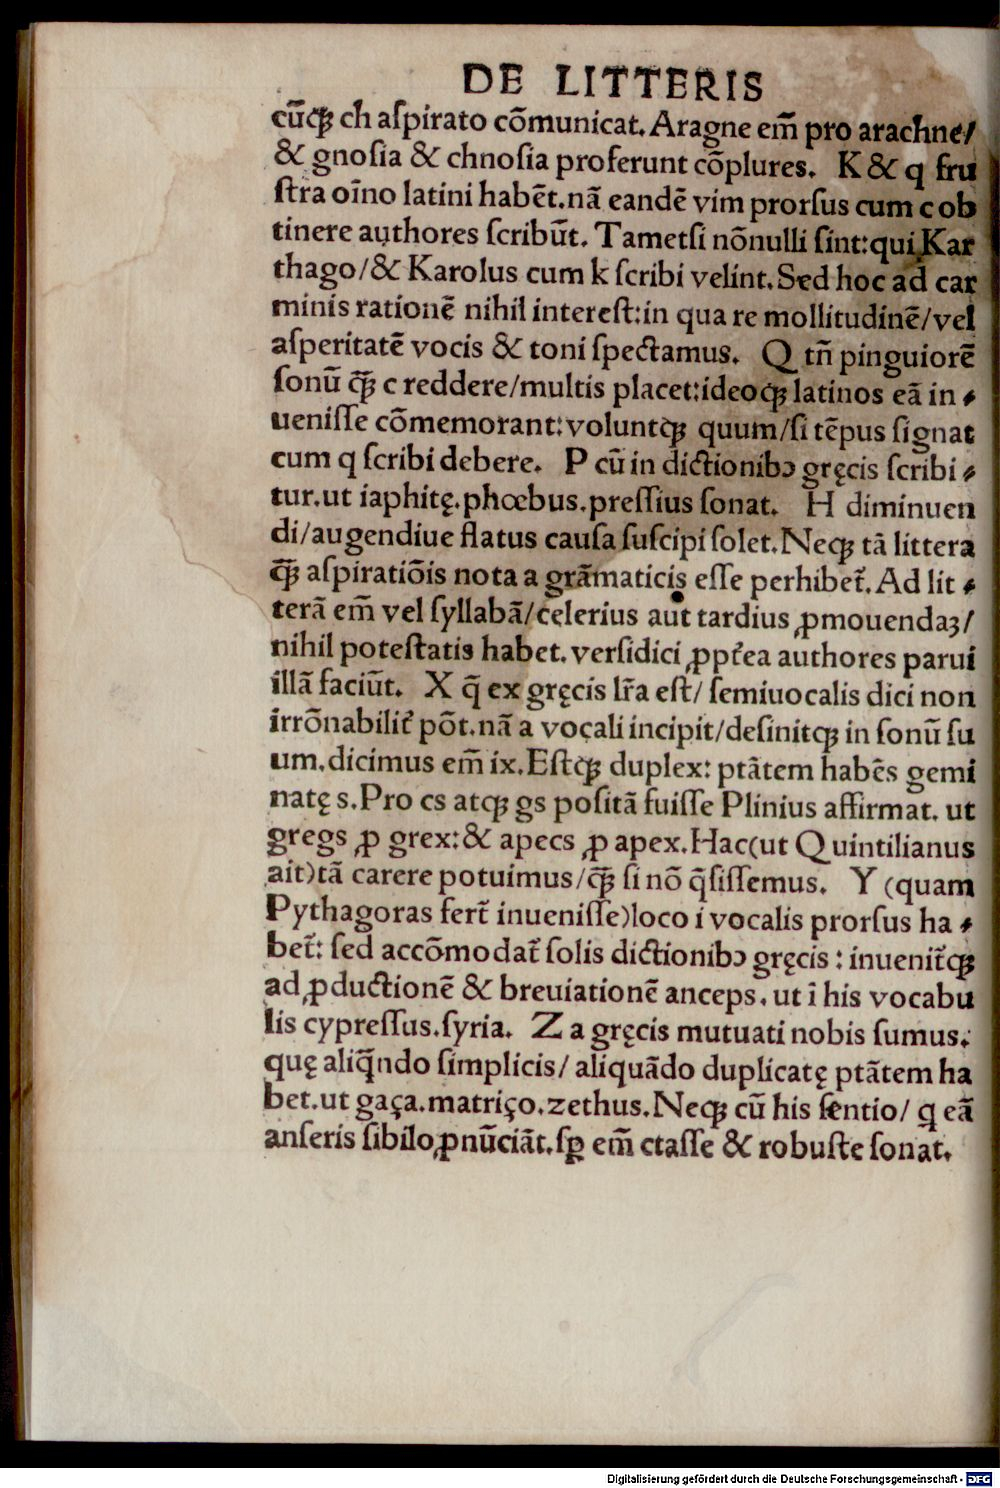 DE LITTERIS
cūqꝫ ch aſpirato cōmunicat. Aragne em̄ pro arachne/
& gnoſia & chnoſia proferunt cōplures. K & q fru
ſtra oīno latini habēt. nā eandē vim prorſus cum c ob
tinere authores ſcribūt. Tametſi nōnulli ſint: qui Kar
thago/& Karolus cum k ſcribi velint. Sed hoc ad car
minis rationē nihil intereſt: in qua re mollitudinē/vel
aſperitatē vocis & toni ſpectamus. Q tn̄ pinguiorē
ſonū q̄ꝫ c reddere/multis placet: ideoqꝫ latinos eā in⸗
ueniſſe cōmemorant: voluntqꝫ quum/ſi tēpus ſignat
cum q ſcribi debere. P cū in dictionibꝰ gręcis ſcribi⸗
tur. ut iaphitę. phœbus. preſſius ſonat. H diminuen
di/augendiue flatus cauſa ſuſcipi ſolet. Neqꝫ tā littera
q̄ꝫ aſpiratiōis nota a grāmaticis eſſe perhibet᷑. Ad lit⸗
terā em̄ vel ſyllabā/celerius aut tardius ꝓmouendaꝫ/
nihil poteſtatis habet. verſidici ꝓpt᷑ea authores parui
illā faciūt. X q̄ ex gręcis lr̄a eſt/ ſemiuocalis dici non
irrōnabilit᷑ pōt. nā a vocali incipit/deſinitqꝫ in ſonū ſu
um. dicimus em̄ ix. Eſtqꝫ duplex: ptātem habēs gemi
natę s. Pro cs atqꝫ gs poſitā fuiſſe Plinius affirmat. ut
gregs ꝓ grex: & apecs ꝓ apex. Hac(ut Quintilianus
ait)tā carere potuimus/q̄ꝫ ſi nō q̄ſiſſemus. Y (quam
Pythagoras fert᷑ inueniſſe)loco i vocalis prorſus ha⸗
bet᷑: ſed accōmodat᷑ ſolis dictionibꝰ gręcis : inuenit᷑qꝫ
ad ꝓductionē & breuiationē anceps. ut ī his vocabu
lis cypreſſus. ſyria. Z a gręcis mutuati nobis ſumus.
quę aliq̄ndo ſimplicis/ aliquādo duplicatę ptātem ha
bet. ut gaça. matriço. zethus. Neqꝫ cū his ſentio/ q eā
anſeris ſibilo ꝓnūciāt. ſꝑ em̄ ctaſſe & robuſte ſonat.
Digitalisierung gefördert durch die Deutsche Forschungsgemeinschaft - DFG